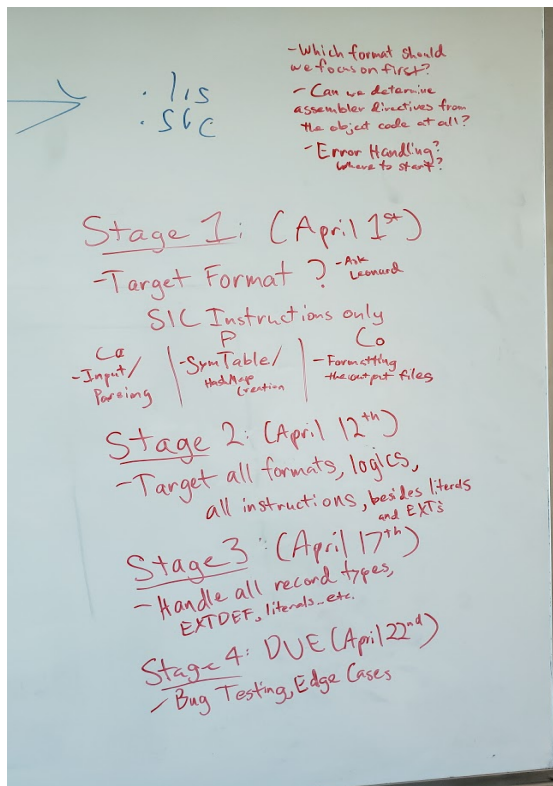 . lis
. sic
- Which format should
we focus on first?
- Can we determine
assembler directives from
the object code at all?
- Error Handling?
Where to start?
Stage 1: (April 1st)
- Target Format ? - Ask
Leonard
SIC Instructions only
Ca
- Input/
Parsing
P
- SymTable/
HashMap
Creation
Co
- Formatting
the output files
Stage 2: (April 12th)
- Target all formats, logics,
all instructions, besides literals
and EXTs
Stage 3 : (April 17th)
- Handle all record types,
EXTDEF, literals... etc.
Stage 4: DUE (April 22nd)
- Bug Testing, Edge Cases